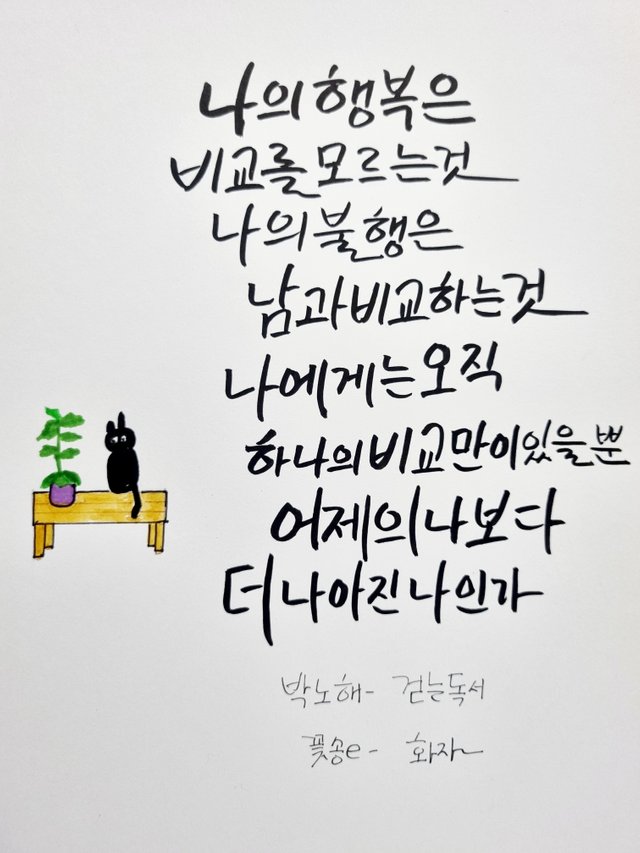 나의 행복은
비교를 모르는 것
나의 불행은
남과 비교하는 것
나에게는 오직
하나의 비교만이 있을 뿐
어제의 나보다
더 나아진 나인가
박노해- 걷는독서
꽃송e- 화자~